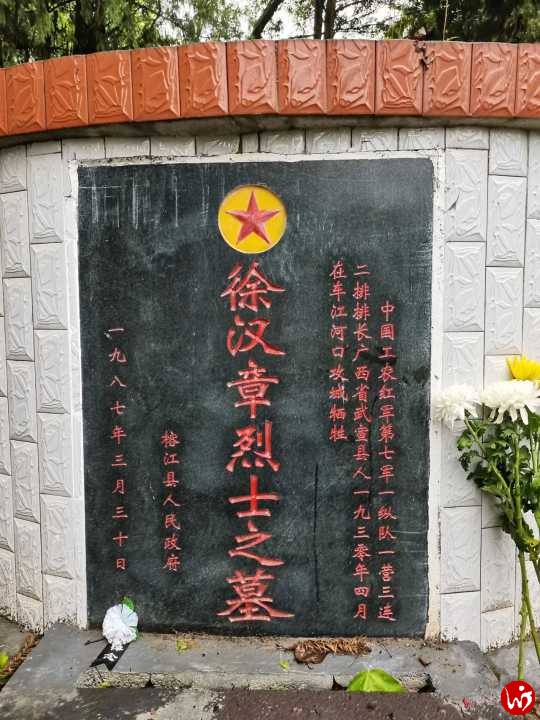 中国工农红军第七军一纵队一营三连
二排排长广西省武宣县人一九三〇年四月
在车江河口攻城牺牲
徐汉章烈士之墓
榕江县人民政府
一九八七年三月三十日